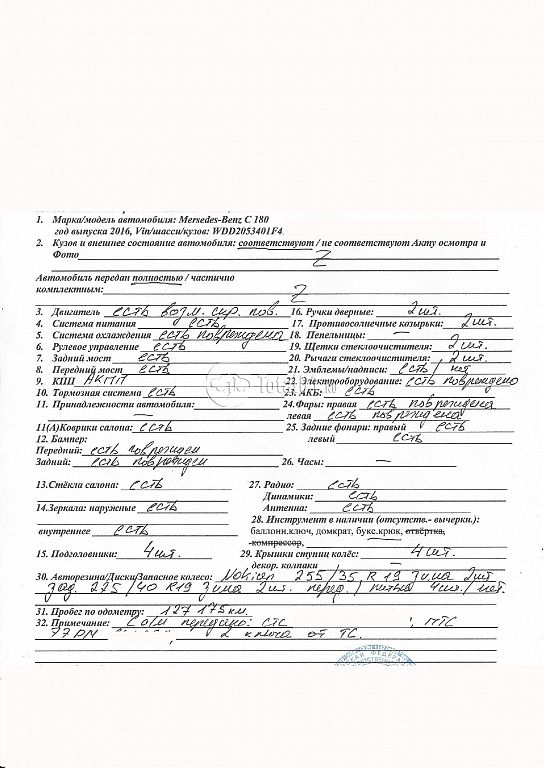 1. Марка/модель автомобиля: Mersedes-Benz C 180
год выпуска 2016, Vin/шасси/кузов: WDD2053401F4
2. Кузов и внешнее состояние автомобиля: соответствуют / не соответствуют Акту осмотра и
Фото Z
Автомобиль передан полностью / частично
комплектным: Z
3. Двигатель есть возм. скр. пов. 16. Ручки дверные: 2 шт.
4. Система питания есть 17. Противосолнечные козырьки: 2 шт.
5. Система охлаждения есть повреждено 18. Пепельницы: —
6. Рулевое управление есть 19. Щетки стеклоочистителя: 2 шт.
7. Задний мост есть 20. Рычаги стеклоочистителя: 2 шт.
8. Передний мост есть 21. Эмблемы/надписи: есть / нет
9. КПП АКПП 22. Электрооборудование: есть повреждено
10. Тормозная система есть 23. АКБ: есть
11. Принадлежности автомобиля: — 24.Фары: правая есть повреждена
левая есть повреждена
11(А)Коврики салона: есть 25. Задние фонари: правый есть
12. Бампер: левый есть
Передний: есть поврежден
Задний: есть поврежден 26. Часы: —
13.Стёкла салона: есть 27. Радио: есть
Динамики: есть
14.Зеркала: наружные есть Антенна: есть
28. Инструмент в наличии (отсутств.- вычеркн.):
внутреннее есть баллонн.ключ, домкрат, букс.крюк, отвёртка,
компрессор,
15. Подголовники: 4 шт. 29. Крышки ступиц колёс: 4 шт.
декор. колпаки —
30. Авторезина/Диски/Запасное колесо: Nokian 255/35 R 19 Зима 2 шт
зад. 225/40 R19 Зима 2 шт. перед. / литые 4 шт. / нет.
31. Пробег по одометру: 127 175 км.
32. Примечание: С а/м передано: СТС , ПТС
77 2 ключа от ТС.